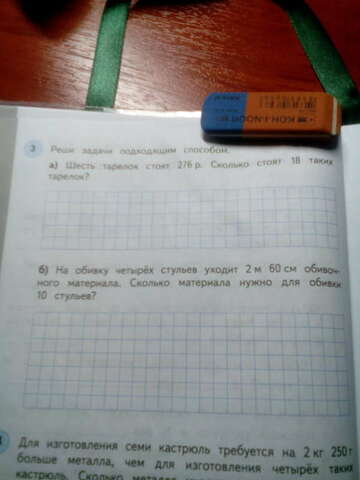 KOH-I-NOOR
3 Реши задачи подходящим способом.
а) Шесть тарелок стоят 276 р. Сколько стоят 18 таких
тарелок?
б) На обивку четырёх стульев уходит 2 м 60 см обивоч-
ного материала. Сколько материала нужно для обивки
10 стульев?
Для изготовления семи кастрюль требуется на 2 кг 250 г
больше металла, чем для изготовления четырёх таких
кастрюль. Сколько металла